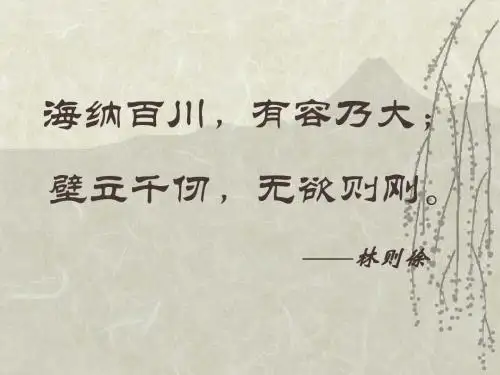 海纳百川，有容乃大；
壁立千仞，无欲则刚。
——林则徐